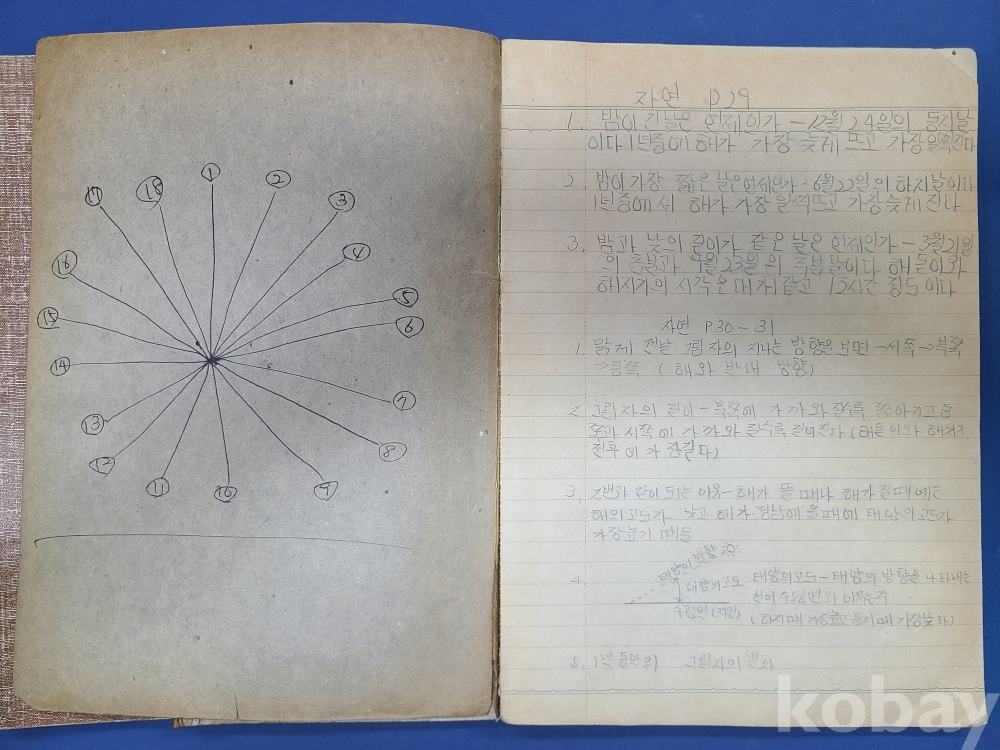 ①
②
③
④
⑤
⑥
⑦
⑧
⑨
⑩
⑪
⑫
⑬
⑭
⑮
⑯
⑰
⑱
자연 P29
1. 밤이 긴날은 언제인가 - 12월 24일의 동지날
이다 1년중에 해가 가장 늦게 뜨고 가장 일찍진다
2. 밤이 가장 짧은 날은 언제인가 - 6월 22일의 하지날이다
1년중에서 해가 가장 일찍뜨고 가장 늦게 진다
3. 밤과 낮의 길이가 같은 날은 언제인가 - 3월 21일
의 춘분과 9월 23일의 추분날이다 해돋이와
시각은 대개 같고 12시간 정도이다
자연 P30~31
1. 맑게 갠날 그림자의 지나는 방향을 보면 - 서쪽→북쪽
→동쪽 (해와 반대 방향)
2. 그림자의 길이 - 북쪽에 가까와 질수록 짧아지고 동
쪽과 서쪽에 가까와 질수록 길어진다 (해돋이와
전후에 가장길다)
3. 2번과 같이 되는 이유 - 해가 뜰 때나 해가 질때에는
해의고도가 낮고 해가 정남에 올때에 태양의고도가
가장높기 때문
4.
태양의 방향
태양의고도
수평면 (지면)
태양의고도 - 태양의 방향을 나타내는
선이 수평면과 이루는
(하지때 가장높고 동지때 가장낮다)
5. 1년 동안의 그림자의 변화
kobay